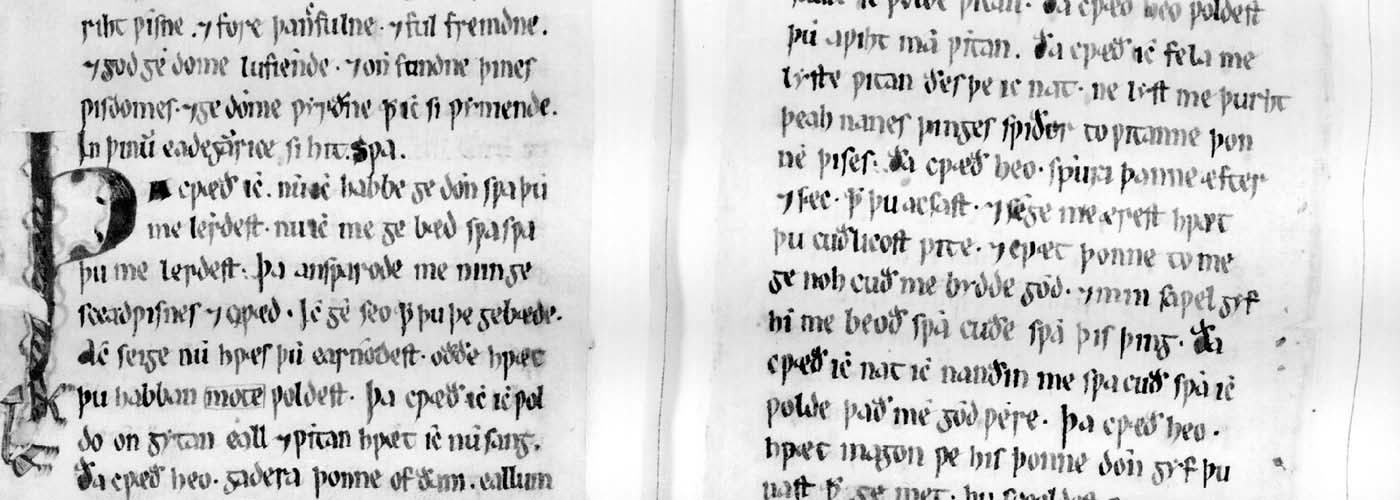 riht ƿisne . ⁊ fore þancfulne . ⁊ ful fremdne .
⁊ god gé dome lufiende . ⁊ on fundne þines
ƿisdomes . ⁊ ge dome ƿyrðne þ̄ ic si ƿuniende .
In þinū eadegan rice . si hit sƿa .
Þa cƿæð ic . nu ic habbe ge don sƿa þu
me lerdest . nu ic me ge bæd sƿa sƿa
þu me lerdest . þa ansƿarode me min ge
sceadƿisnes ⁊ cƿæd . Ic ge seo þ̄ þu þe gebæde .
Ac seige nu hƿæs þu earnodest . odðe hƿæt
þu habban mote ƿoldest . þa cƿæð ic ic ƿol
do on gytan eall ⁊ ƿitan hƿæt ic nu sang .
Ða cƿæð heo . gadera þonne of ðam . eallum
ic ƿolde ƿitan . Ða cƿæð heo ƿoldest
þu aƿiht mā ƿitan . Ða cƿæð ic fela me
lyste ƿitan ðes þe ic nat . ne lyst me þurht
þeah nanes þinges sƿiðor to ƿitanne þon
ne þises . Ða cƿæð heo . sƿura þanne æfter
⁊ sec . þ̄ þu acsast . ⁊ sege me ærest hƿæt
þu cuðlicost ƿite . ⁊ cƿæt þonne to me
ge noh cuð me bydde god . ⁊ min saƿel gyf
hi me beoð sƿa cuðe sƿa þis þing . Ða
cƿæð ic nat ic nanðin me sƿa cuð sƿa ic
ƿolde það me god ƿere . Þa cƿæð heo .
hƿæt magon ƿe his þonne don gyf þu
nast þ̄ . ge met . hu